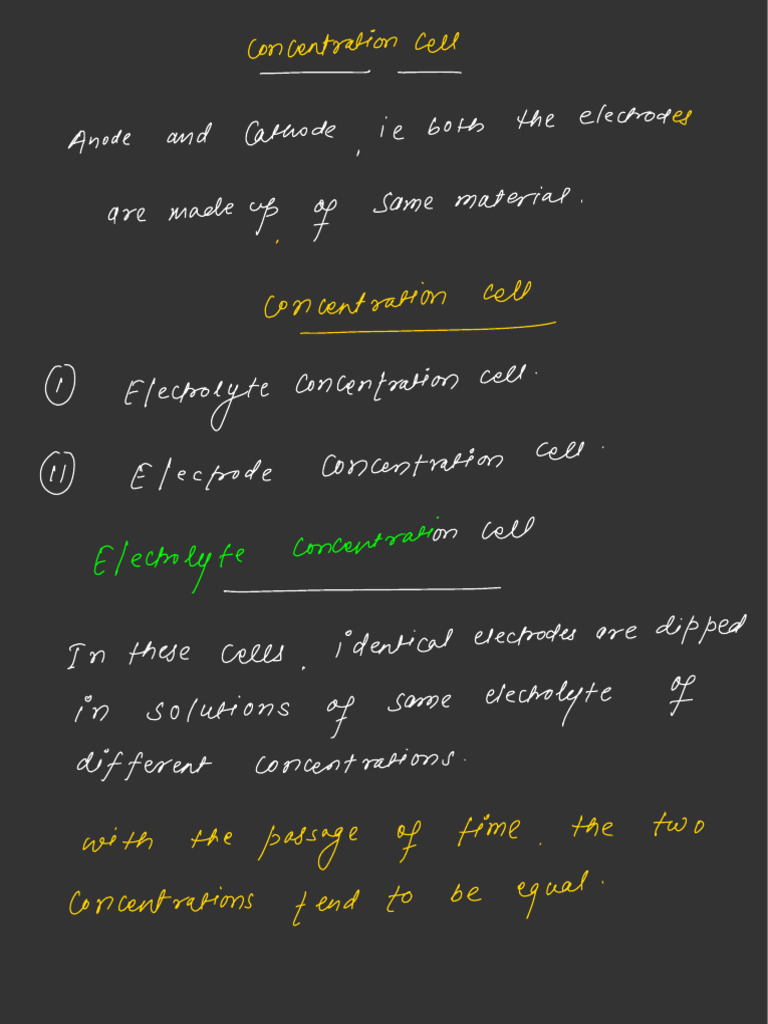 Concentration Cell
Anode and Cathode, ie both the electrodes
are made up of same material.
Concentration cell
I Electrolyte concentration cell.
II Electrode concentration cell.
Electrolyte concentration cell
In these cells, identical electrodes are dipped
in solutions of same electrolyte of
different concentrations.
with the passage of time, the two
concentrations tend to be equal.